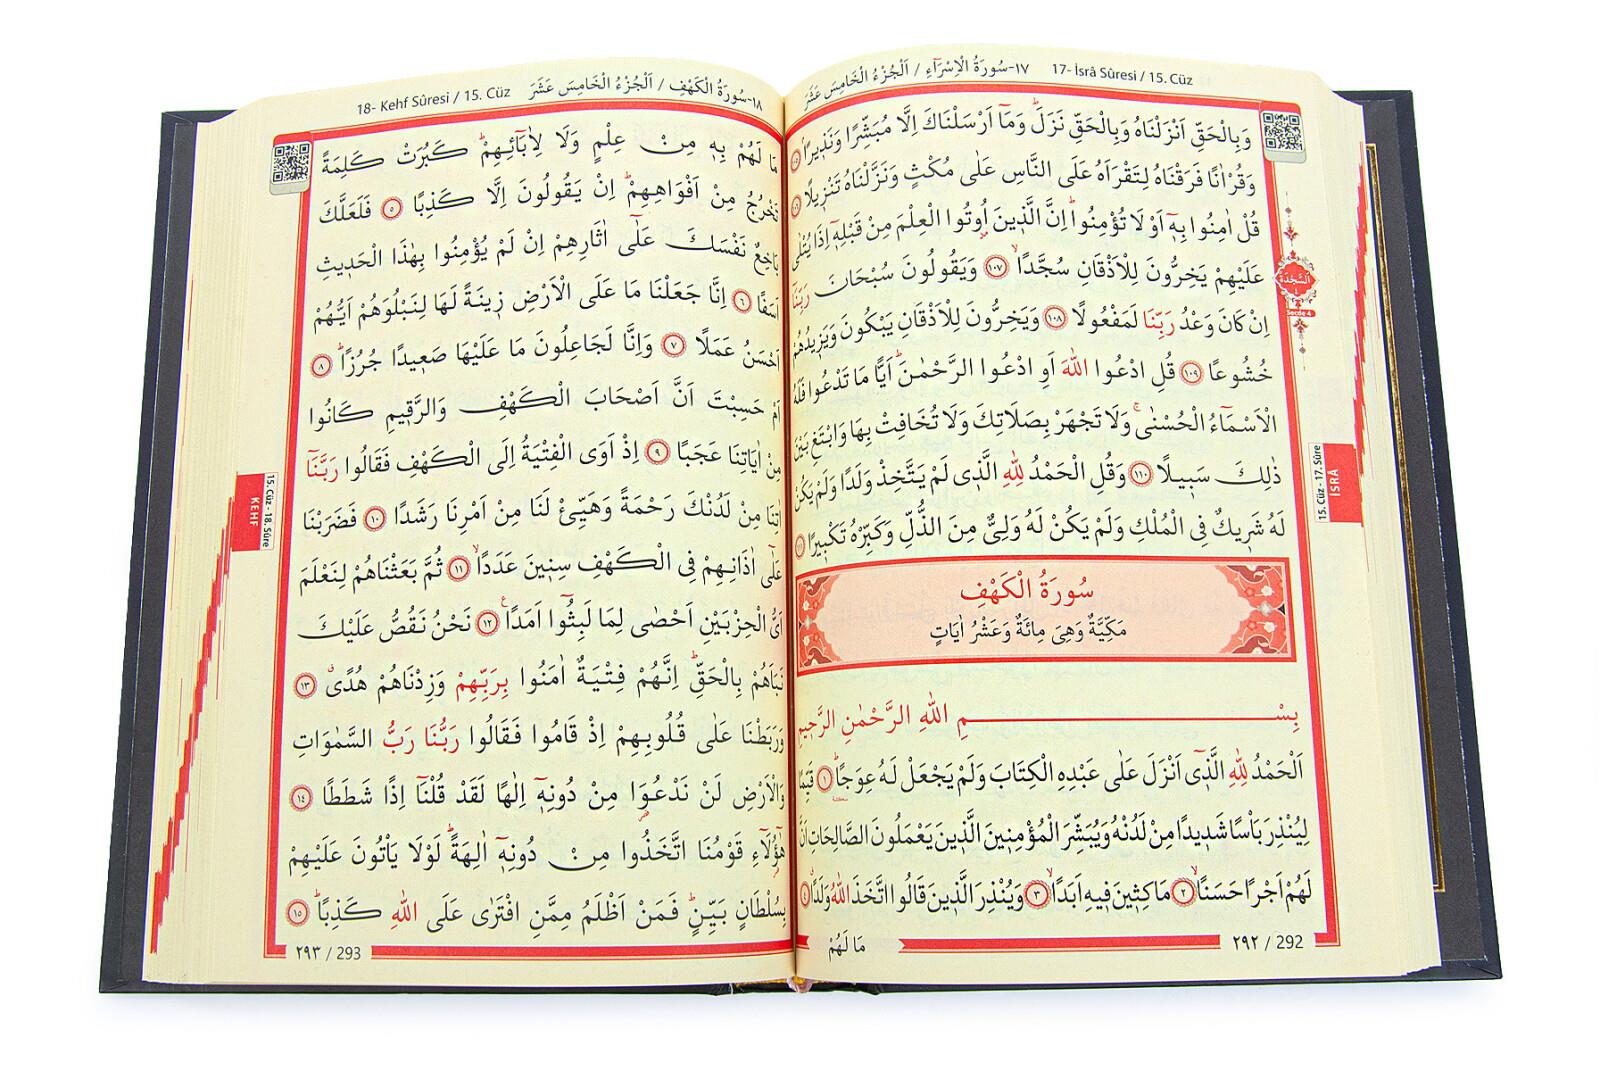 ١٧-سُورَةُ الْاِسْرَٓاءِ / اَلْجُزْءُ الْخَامِسَ عَشَرَ 17- İsrâ Sûresi / 15. Cüz
وَبِالْحَقِّ اَنْزَلْنَاهُ وَبِالْحَقِّ نَزَلَۜ وَمَٓا اَرْسَلْنَاكَ اِلَّا مُبَشِّرًا وَنَذ۪يرًاۢ ﴿١٠٥﴾
وَقُرْاٰنًا فَرَقْنَاهُ لِتَقْرَاَهُ عَلَى النَّاسِ عَلٰى مُكْثٍ وَنَزَّلْنَاهُ تَنْز۪يلًا ﴿١٠٦﴾
قُلْ اٰمِنُوا بِه۪ٓ اَوْ لَا تُؤْمِنُواۜ اِنَّ الَّذ۪ينَ اُو۫تُوا الْعِلْمَ مِنْ قَبْلِه۪ٓ اِذَا يُتْلٰى
عَلَيْهِمْ يَخِرُّونَ لِلْاَذْقَانِ سُجَّدًاۙ ﴿١٠٧﴾ وَيَقُولُونَ سُبْحَانَ رَبِّنَٓا
اِنْ كَانَ وَعْدُ رَبِّنَا لَمَفْعُولًا ﴿١٠٨﴾ وَيَخِرُّونَ لِلْاَذْقَانِ يَبْكُونَ وَيَز۪يدُهُمْ
خُشُوعًا ﴿١٠٩﴾ قُلِ ادْعُوا اللّٰهَ اَوِ ادْعُوا الرَّحْمٰنَۜ اَيًّا مَا تَدْعُوا فَلَهُ
الْاَسْمَٓاءُ الْحُسْنٰىۚ وَلَا تَجْهَرْ بِصَلَاتِكَ وَلَا تُخَافِتْ بِهَا وَابْتَغِ بَيْنَ
ذٰلِكَ سَب۪يلًا ﴿١١٠﴾ وَقُلِ الْحَمْدُ لِلّٰهِ الَّذ۪ى لَمْ يَتَّخِذْ وَلَدًا وَلَمْ يَكُنْ
لَهُ شَر۪يكٌ فِى الْمُلْكِ وَلَمْ يَكُنْ لَهُ وَلِىٌّ مِنَ الذُّلِّ وَكَبِّرْهُ تَكْب۪يرًا ﴿١١١﴾
اَلسَّجْدَةُ
٤
Secde 4
15. Cüz - 17. Sûre
İSRÂ
سُورَةُ الْكَهْفِ
مَكِّيَّةٌ وَهِىَ مِائَةٌ وَعَشْرُ اٰيَاتٍ
بِسْمِ اللّٰهِ الرَّحْمٰنِ الرَّح۪يمِ
اَلْحَمْدُ لِلّٰهِ الَّذ۪ٓى اَنْزَلَ عَلٰى عَبْدِهِ الْكِتَابَ وَلَمْ يَجْعَلْ لَهُ عِوَجًاۜ ﴿١﴾ قَيِّمًا
لِيُنْذِرَ بَاْسًا شَد۪يدًا مِنْ لَدُنْهُ وَيُبَشِّرَ الْمُؤْمِن۪ينَ الَّذ۪ينَ يَعْمَلُونَ الصَّالِحَاتِ اَنَّ
لَهُمْ اَجْرًا حَسَنًاۙ ﴿٢﴾ مَاكِث۪ينَ ف۪يهِ اَبَدًاۙ ﴿٣﴾ وَيُنْذِرَ الَّذ۪ينَ قَالُوا اتَّخَذَ اللّٰهُ وَلَدًاۗ ﴿٤﴾
٢٩٢ / 292
مَا لَهُمْ
١٨-سُورَةُ الْكَهْفِ / اَلْجُزْءُ الْخَامِسَ عَشَرَ 18- Kehf Sûresi / 15. Cüz
مَا لَهُمْ بِه۪ مِنْ عِلْمٍ وَلَا لِاٰبَٓائِهِمْۜ كَبُرَتْ كَلِمَةً
تَخْرُجُ مِنْ اَفْوَاهِهِمْۜ اِنْ يَقُولُونَ اِلَّا كَذِبًا ﴿٥﴾ فَلَعَلَّكَ
بَاخِعٌ نَفْسَكَ عَلٰٓى اٰثَارِهِمْ اِنْ لَمْ يُؤْمِنُوا بِهٰذَا الْحَد۪يثِ
اَسَفًا ﴿٦﴾ اِنَّا جَعَلْنَا مَا عَلَى الْاَرْضِ ز۪ينَةً لَهَا لِنَبْلُوَهُمْ اَيُّهُمْ
اَحْسَنُ عَمَلًا ﴿٧﴾ وَاِنَّا لَجَاعِلُونَ مَا عَلَيْهَا صَع۪يدًا جُرُزًاۜ ﴿٨﴾
اَمْ حَسِبْتَ اَنَّ اَصْحَابَ الْكَهْفِ وَالرَّق۪يمِ كَانُوا
مِنْ اٰيَاتِنَا عَجَبًا ﴿٩﴾ اِذْ اَوَى الْفِتْيَةُ اِلَى الْكَهْفِ فَقَالُوا رَبَّنَٓا
اٰتِنَا مِنْ لَدُنْكَ رَحْمَةً وَهَيِّئْ لَنَا مِنْ اَمْرِنَا رَشَدًا ﴿١٠﴾ فَضَرَبْنَا
عَلٰٓى اٰذَانِهِمْ فِى الْكَهْفِ سِن۪ينَ عَدَدًاۙ ﴿١١﴾ ثُمَّ بَعَثْنَاهُمْ لِنَعْلَمَ
اَىُّ الْحِزْبَيْنِ اَحْصٰى لِمَا لَبِثُٓوا اَمَدًا۟ ﴿١٢﴾ نَحْنُ نَقُصُّ عَلَيْكَ
نَبَاَهُمْ بِالْحَقِّۜ اِنَّهُمْ فِتْيَةٌ اٰمَنُوا بِرَبِّهِمْ وَزِدْنَاهُمْ هُدًىۗ ﴿١٣﴾
وَرَبَطْنَا عَلٰى قُلُوبِهِمْ اِذْ قَامُوا فَقَالُوا رَبُّنَا رَبُّ السَّمٰوَاتِ
وَالْاَرْضِ لَنْ نَدْعُوَ۬ا مِنْ دُونِه۪ٓ اِلٰهًا لَقَدْ قُلْنَٓا اِذًا شَطَطًا ﴿١٤﴾
هٰٓؤُ۬لَٓاءِ قَوْمُنَا اتَّخَذُوا مِنْ دُونِه۪ٓ اٰلِهَةًۜ لَوْلَا يَاْتُونَ عَلَيْهِمْ
بِسُلْطَانٍ بَيِّنٍۜ فَمَنْ اَظْلَمُ مِمَّنِ افْتَرٰى عَلَى اللّٰهِ كَذِبًاۜ ﴿١٥﴾
15. Cüz - 18. Sûre
KEHF
٢٩٣ / 293